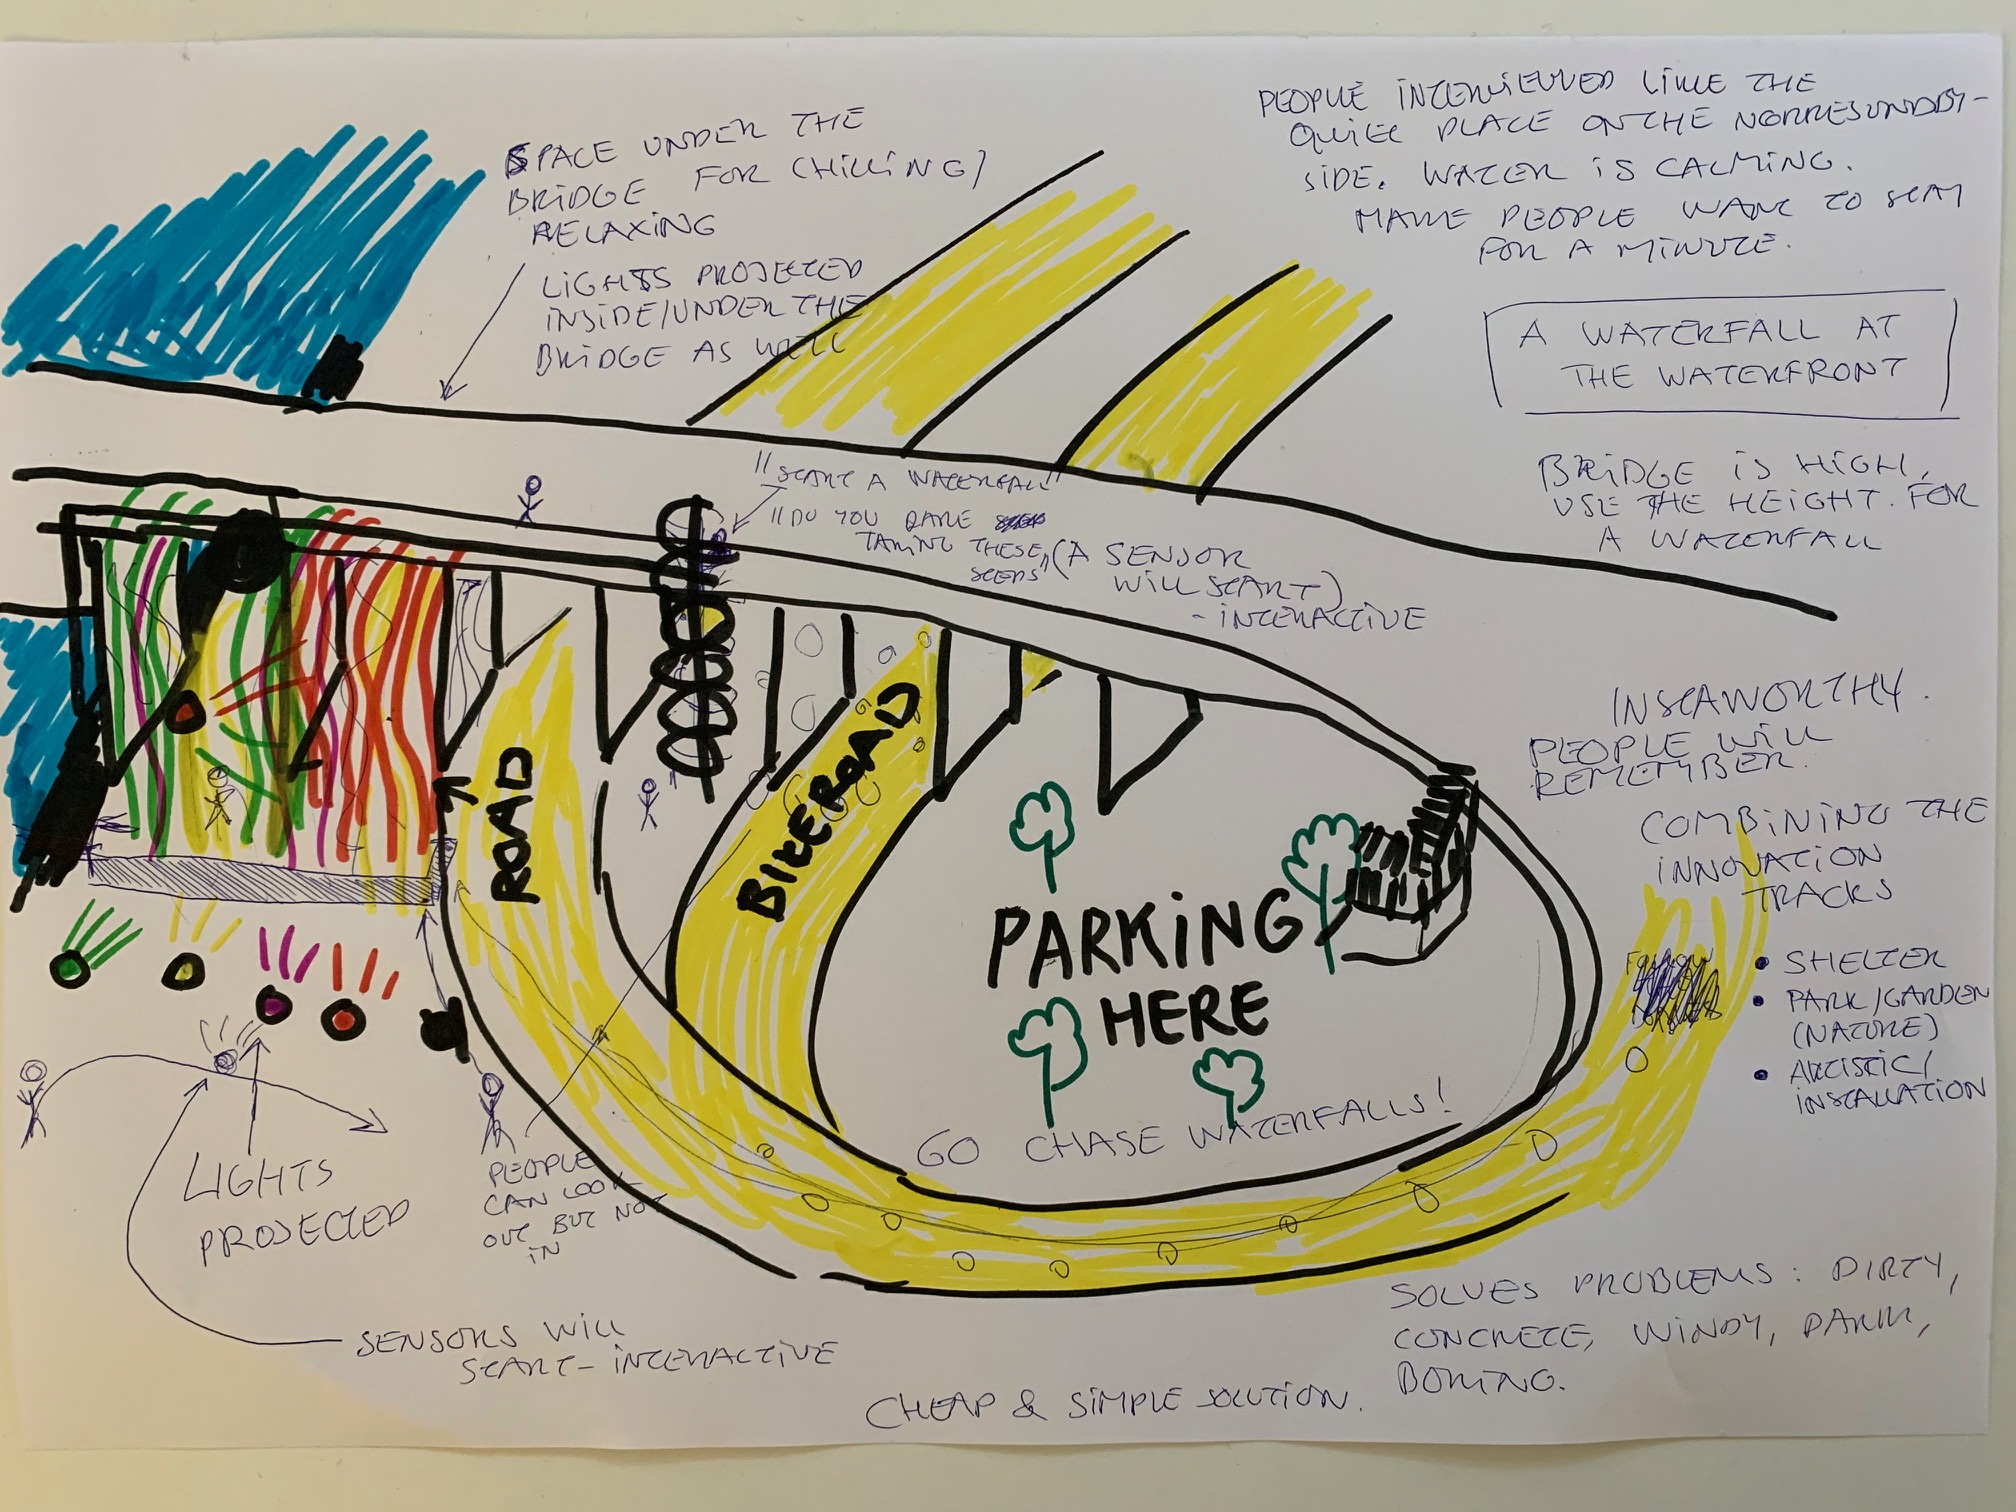 SPACE UNDER THE
BRIDGE FOR CHILLING/
RELAXING
LIGHTS PROJECTED
INSIDE/UNDER THE
BRIDGE AS WELL
PEOPLE INTERVIEWED LIKE THE
QUIET PLACE ON THE NØRRESUNDBY-
SIDE. WATER IS CALMING.
MAKE PEOPLE WANT TO STAY
FOR A MINUTE.
A WATERFALL AT
THE WATERFRONT
BRIDGE IS HIGH,
USE THE HEIGHT. FOR
A WATERFALL
"START A WATERFALL"
"DO YOU DARE
TAKING THESE
STEPS"
(A SENSOR
WILL START)
- INTERACTIVE
INSTAWORTHY.
PEOPLE WILL
REMEMBER.
COMBINING THE
INNOVATION
TRACKS
• SHELTER
• PARK/GARDEN
(NATURE)
• ARTISTIC/
INSTALLATION
ROAD
BIKEROAD
PARKING
HERE
GO CHASE WATERFALLS!
LIGHTS
PROJECTED
PEOPLE
CAN LOOK
OUT BUT NOT
IN
SENSORS WILL
START - INTERACTIVE
SOLVES PROBLEMS: DIRTY,
CONCRETE, WINDY, DARK,
BORING.
CHEAP & SIMPLE SOLUTION.